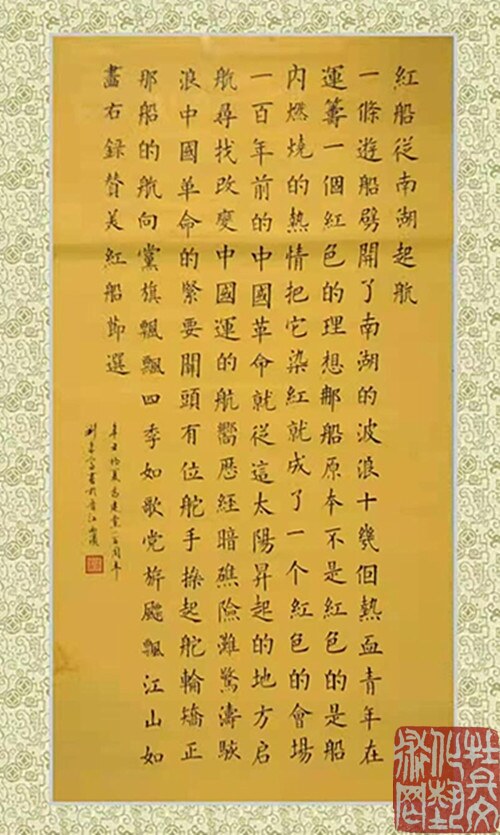 紅船從南湖起航
一條遊船劈開了南湖的波浪十幾個熱血青年在
運籌一個紅色的理想那船原本不是紅色的是船
內燃燒的熱情把它染紅就成了一个紅色的會場
一百年前的中國革命就從這太陽昇起的地方启
航尋找改變中國運的航嚮歷經暗礁險灘驚濤駭
浪中國革命的緊要關頭有位舵手操起舵輪矯正
那船的航向黨旗飄飄四季如歌党旂飈飄江山如
畫右錄贊美紅船節選
辛丑初夏為建党一百周年